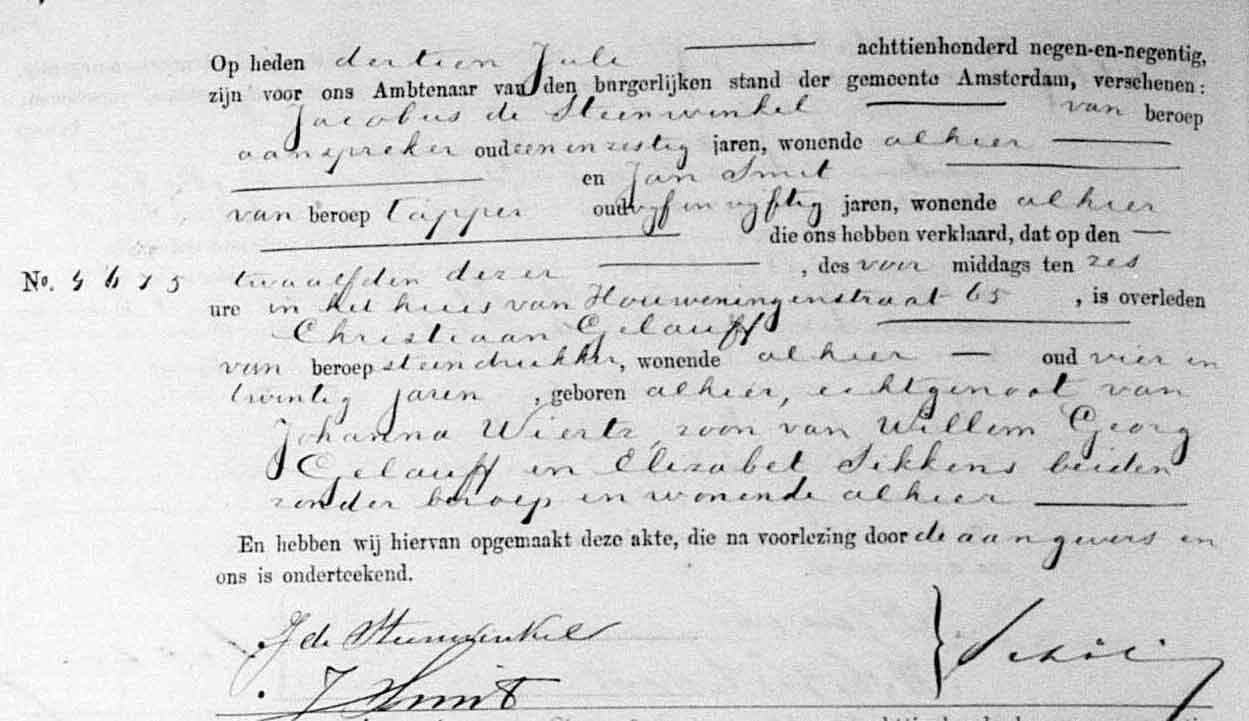 Op heden dertien Juli achttienhonderd negen-en-negentig,
zijn voor ons Ambtenaar van den burgerlijken stand der gemeente Amsterdam, verschenen:
Jacobus de Steenwinkel van beroep
aanspreker oud een en zestig jaren, wonende alhier
en Jan Smit
van beroep tapper oud vyf en vyftig jaren, wonende alhier
die ons hebben verklaard, dat op den
No. twaalfden dezer , des voor middags ten zes
ure in het huis van Houweningenstraat 65 , is overleden
Christiaan Gelauff
van beroep steendrukker, wonende alhier oud vier en
twintig jaren , geboren alhier, echtgenoot van
Johanna Wiertz, zoon van Willem Georg
Gelauff en Elizabet Sikkens beiden
zonder beroep en wonende alhier
En hebben wij hiervan opgemaakt deze akte, die na voorlezing door de aangevers en
ons is onderteekend.
J de Steenwinkel
J Smit